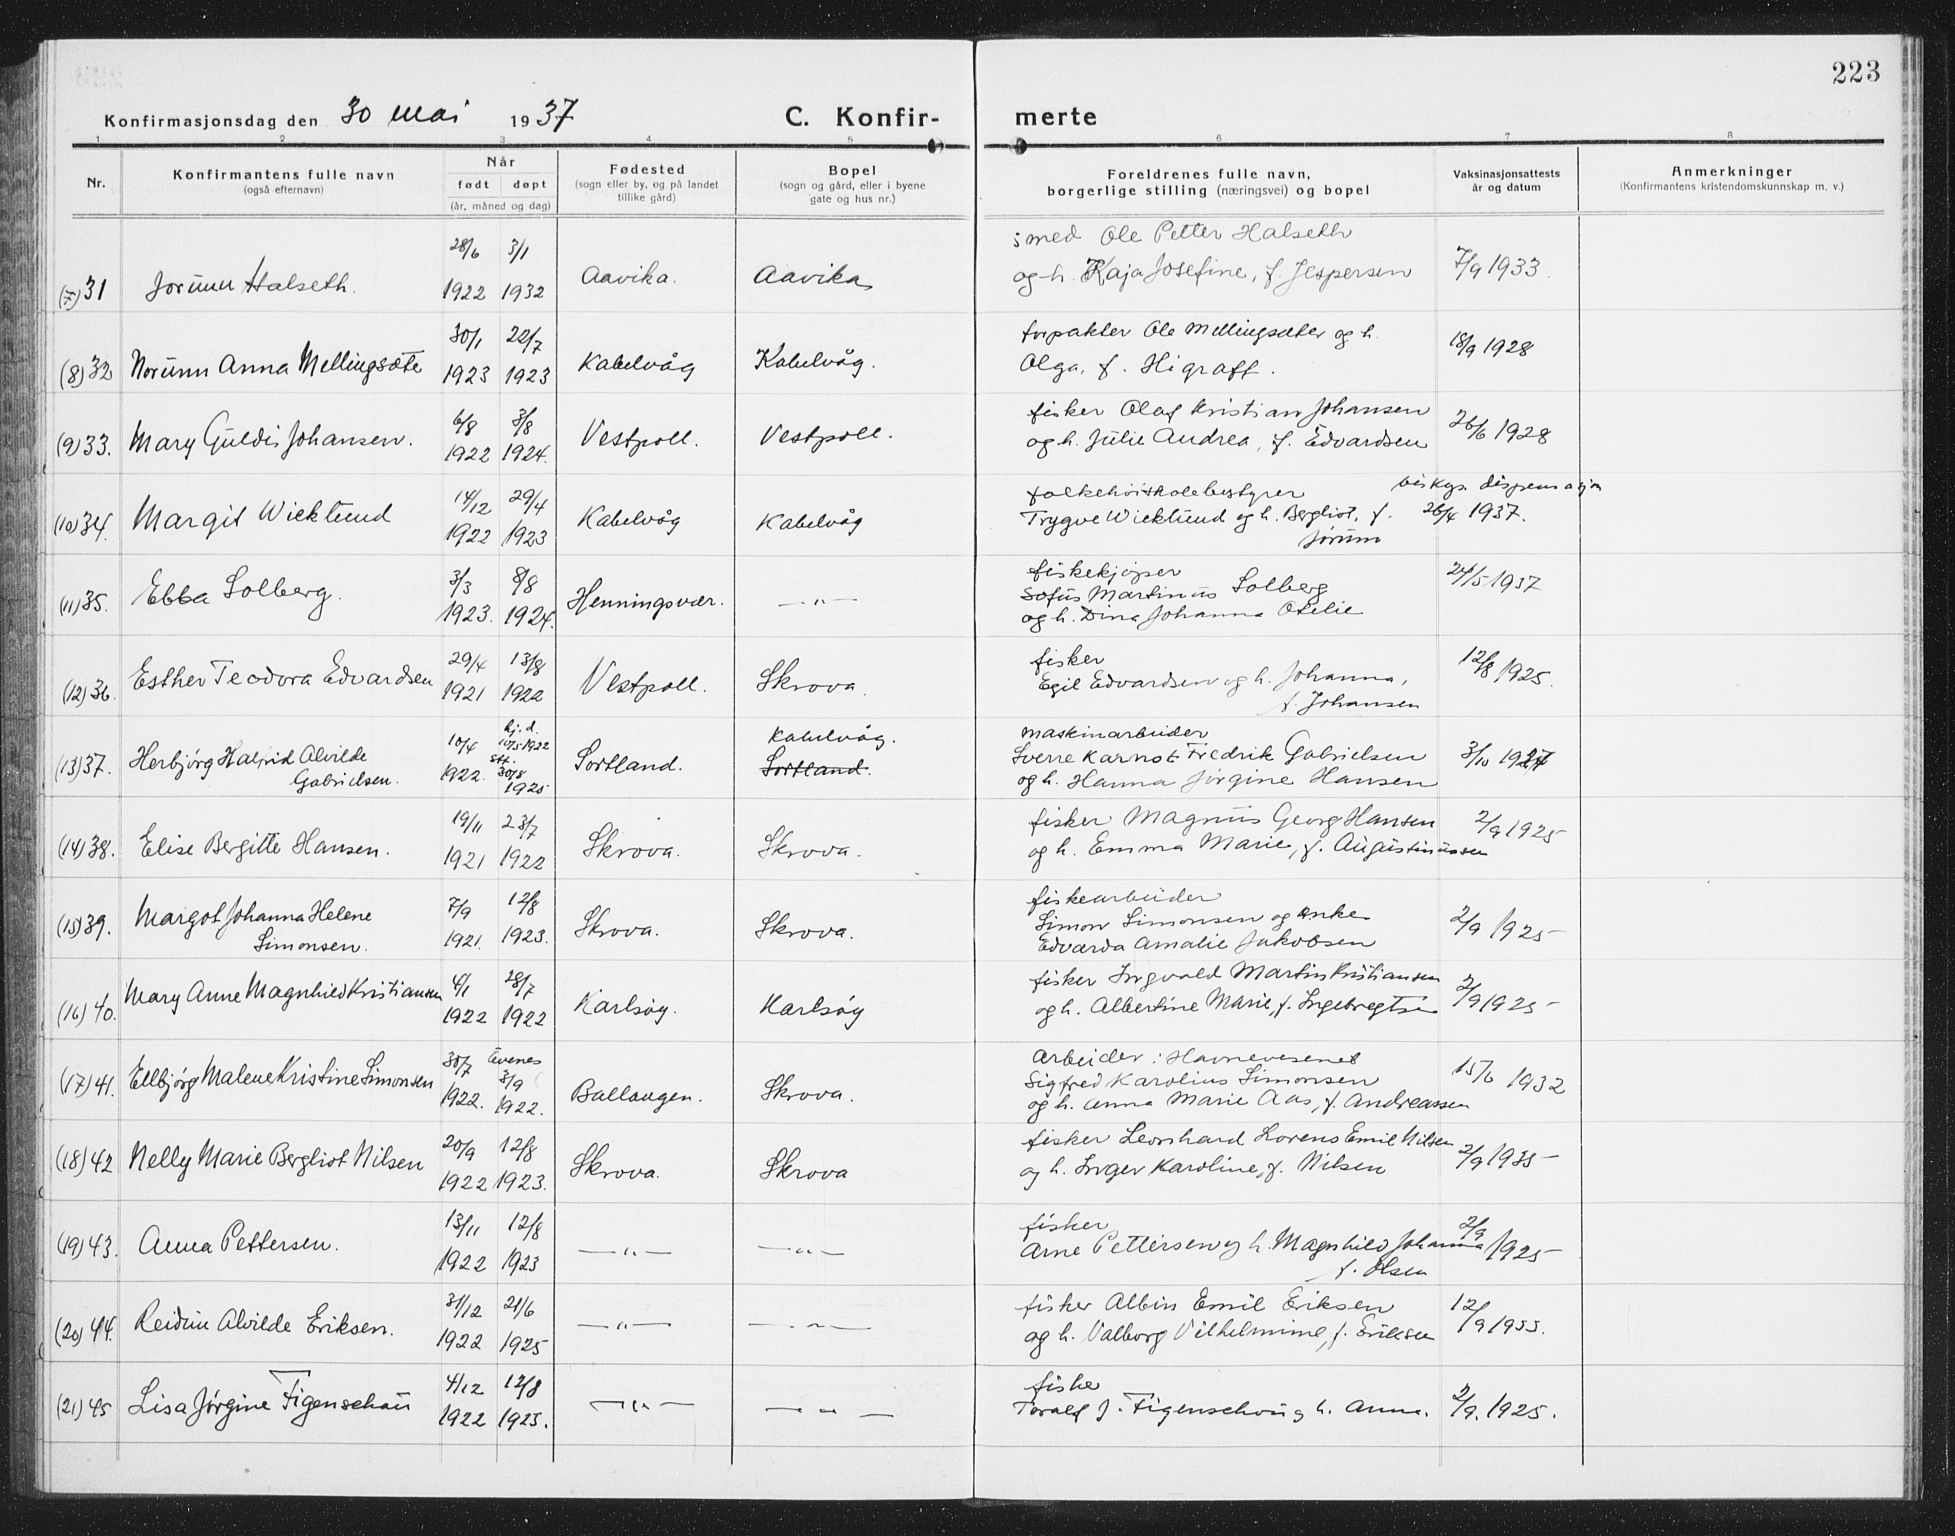 223
Konfirmasjonsdag den 30 mai 1937
C. Konfir-merte
1 2 3 4 5 6 7 8
Nr.
Konfirmantens fulle navn
(også efternavn)
Når
født døpt
(år, måned og dag)
Fødested
(sogn eller by, og på landet
tillike gård)
Bopel
(sogn og gård, eller i byene
gate og hus nr.)
Foreldrenes fulle navn,
borgerlige stilling (næringsvei) og bopel
Vaksinasjonsattests
år og datum
Anmerkninger
(Konfirmantens kristendomskunnskap m. v.)
28/6 3/1 smed Ole Petter Halseth
(7) 31 Jorunn Halseth. 1922 1932 Aavika. Aavika og h. Kaja Josefine, f. Jespersen 7/9 1933.
30/1 22/7 forpakter Ole Mellingsæter og h. 18/9 1928
(8) 32 Norunn Anna Mellingsæte 1923 1923 Kabelvåg Kabelvåg. Olga, f. Higraff.
6/8 3/8 fisker Olaf Kristian Johansen
(9) 33. Mary Guldis Johansen. 1922 1924. Vestpoll. Vestpoll. og h. Julie Andrea, f. Edvardsen 26/6 1928
14/12 29/4 folkehøiskolebestyrer bisksp. dispensasjon
(10) 34. Margit Wicklund 1922 1923 Kabelvåg Kabelvåg Trygve Wicklund og h. Bergliot, f. 26/4 1937.
Jørum
3/3 8/8 fiskekjøper 24/5 1937
(11) 35. Ebba Solberg. 1923. 1924. Henningsvær. —"— Sofus Martinus Solberg
og h. Dina Johanna Otelie
29/4 13/8 fisker 12/8 1925.
(12) 36. Esther Teodora Edvardsen 1921 1922 Vestpoll. Skrova. Egil Edvardsen og h. Johanna,
f. Johansen
10/4 hj.d. 10/5 1922 Kabelvåg. maskinarbeider
(13) 37. Herbjørg Halfrid Alvilde 1922. stf. 30/8 1925 Sortland. Sortland. Sverre Karnot Fredrik Gabrielsen 3/10
Gabrielsen. og h. Hanna Jørgine Hansen
19/11 23/7 fisker Magnus Georg Hansen 2/9 1925
(14) 38. Elise Bergitte Hansen. 1921 1922 Skrova. Skrova. og h. Emma Marie, f. Augustinussen
7/9 12/8 fiskearbeider
(15) 39. Margot Johanna Helene 1921. 1923. Skrova. Skrova. Simon Simonsen og Anke 2/9 1925
Simonsen. Edvarda Amalie Jakobsen
4/1 28/7 fisker Ingvald Martin Kristiansen
(16) 40. Mary Anne Magnhild Kristiansen 1922 1922 Karlsøy. Karlsøy og h. Albertine Marie, f. Ingebregtsen 2/9 1925
30/7 Evenes 3/9 arbeider i Havnevesenet
(17) 41. Ellbjørg Malene Kristine Simonsen 1922. 1922. Ballangen. Skrova. Sigfred Karolius Simonsen 15/6 1932
og h. Anna Marie Aas, f. Andreassen
20/9 12/8 fisker Leonhard Lorens Emil Nilsen
(18) 42 Nelly Marie Bergliot Nilsen 1922 1923. Skrova. Skrova og h. Inger Karoline, f. Nilsen 2/9 1935
13/11 12/8 fisker 2/9
(19) 43. Anna Pettersen. 1922 1923 —"— —"— Arne Pettersen og h. Magnhild Johanna 1925
f. Olsen
31/12 21/6 fisker Albin Emil Eriksen
(20) 44. Reidun Alvilde Eriksen. 1922 1925 —"— —"— og h. Valborg Vilhelmine, f. Eriksen 12/9 1933.
4/12 12/8 fisker
(21) 45 Lisa Jørgine Figenschau 1922 1923. —"— —"— Toralf J. Figenschou og h. Anna. 2/9. 1925.